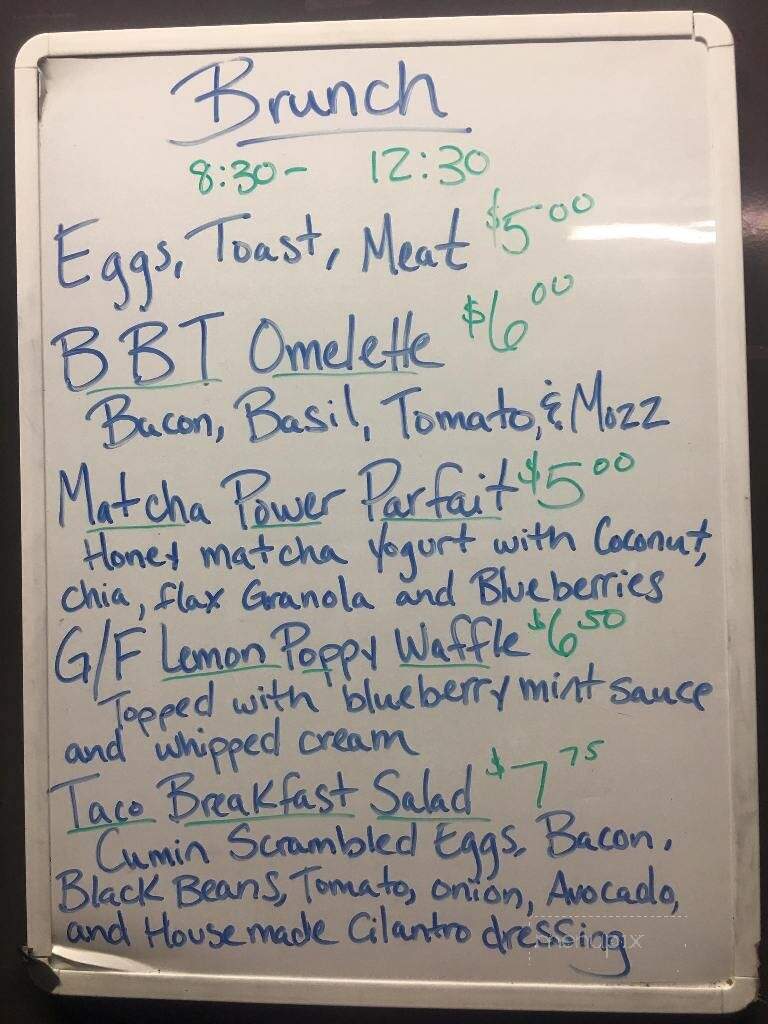 Brunch
8:30- 12:30
Eggs, Toast, Meat $5.00
BBT Omelette $6.00
Bacon, Basil, Tomato, & Mozz
Matcha Power Parfait $5.00
Honey matcha Yogurt with Coconut,
chia, flax Granola and Blueberries
G/F Lemon Poppy Waffle $6.50
Topped with blueberry mint sauce
and whipped cream
Taco Breakfast Salad $7.75
Cumin Scrambled Eggs, Bacon,
Black Beans, Tomato, onion, Avocado,
and Housemade Cilantro dressing
menupix